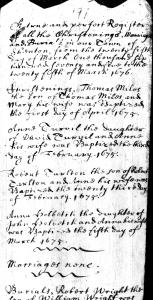 A true and perfect Register
of all the Christenings, Marriages
and Burials in our Town of
from the twenty fifth
of March one thousand six
hundred seventy and five to the
twenty fifth of March 1676.
Christenings. Thomas Miles
the son of Thomas Miles and
Mary his wife was Baptized
the first day of April 1675.
the Daughter
of David and Anne
his wife was Baptized the third
day of February. 1675.
Robert the son of Robert
and Anne his wife was
Baptized the twenty third day
February. 1675.
Anna the Daughter of
John and Anna his wife
was Baptized the fifth day of
March 1675.
Marriages none.
Burials, Robert Wright the
son of William Wright was